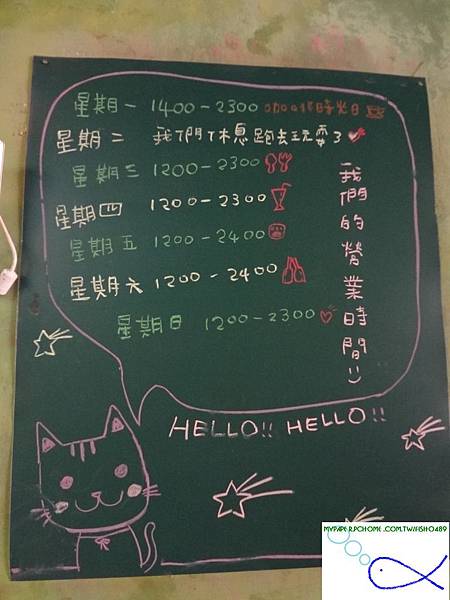 星期一 1400-2300 咖啡時光日
星期二 我們休息跑去玩耍了
星期三 1200-2300
星期四 1200-2300
星期五 1200-2400
星期六 1200-2400
星期日 1200-2300
我們的營業時間:)
HELLO!! HELLO!!
MYPAPER.PCHOME.COM.TW/FISH0489